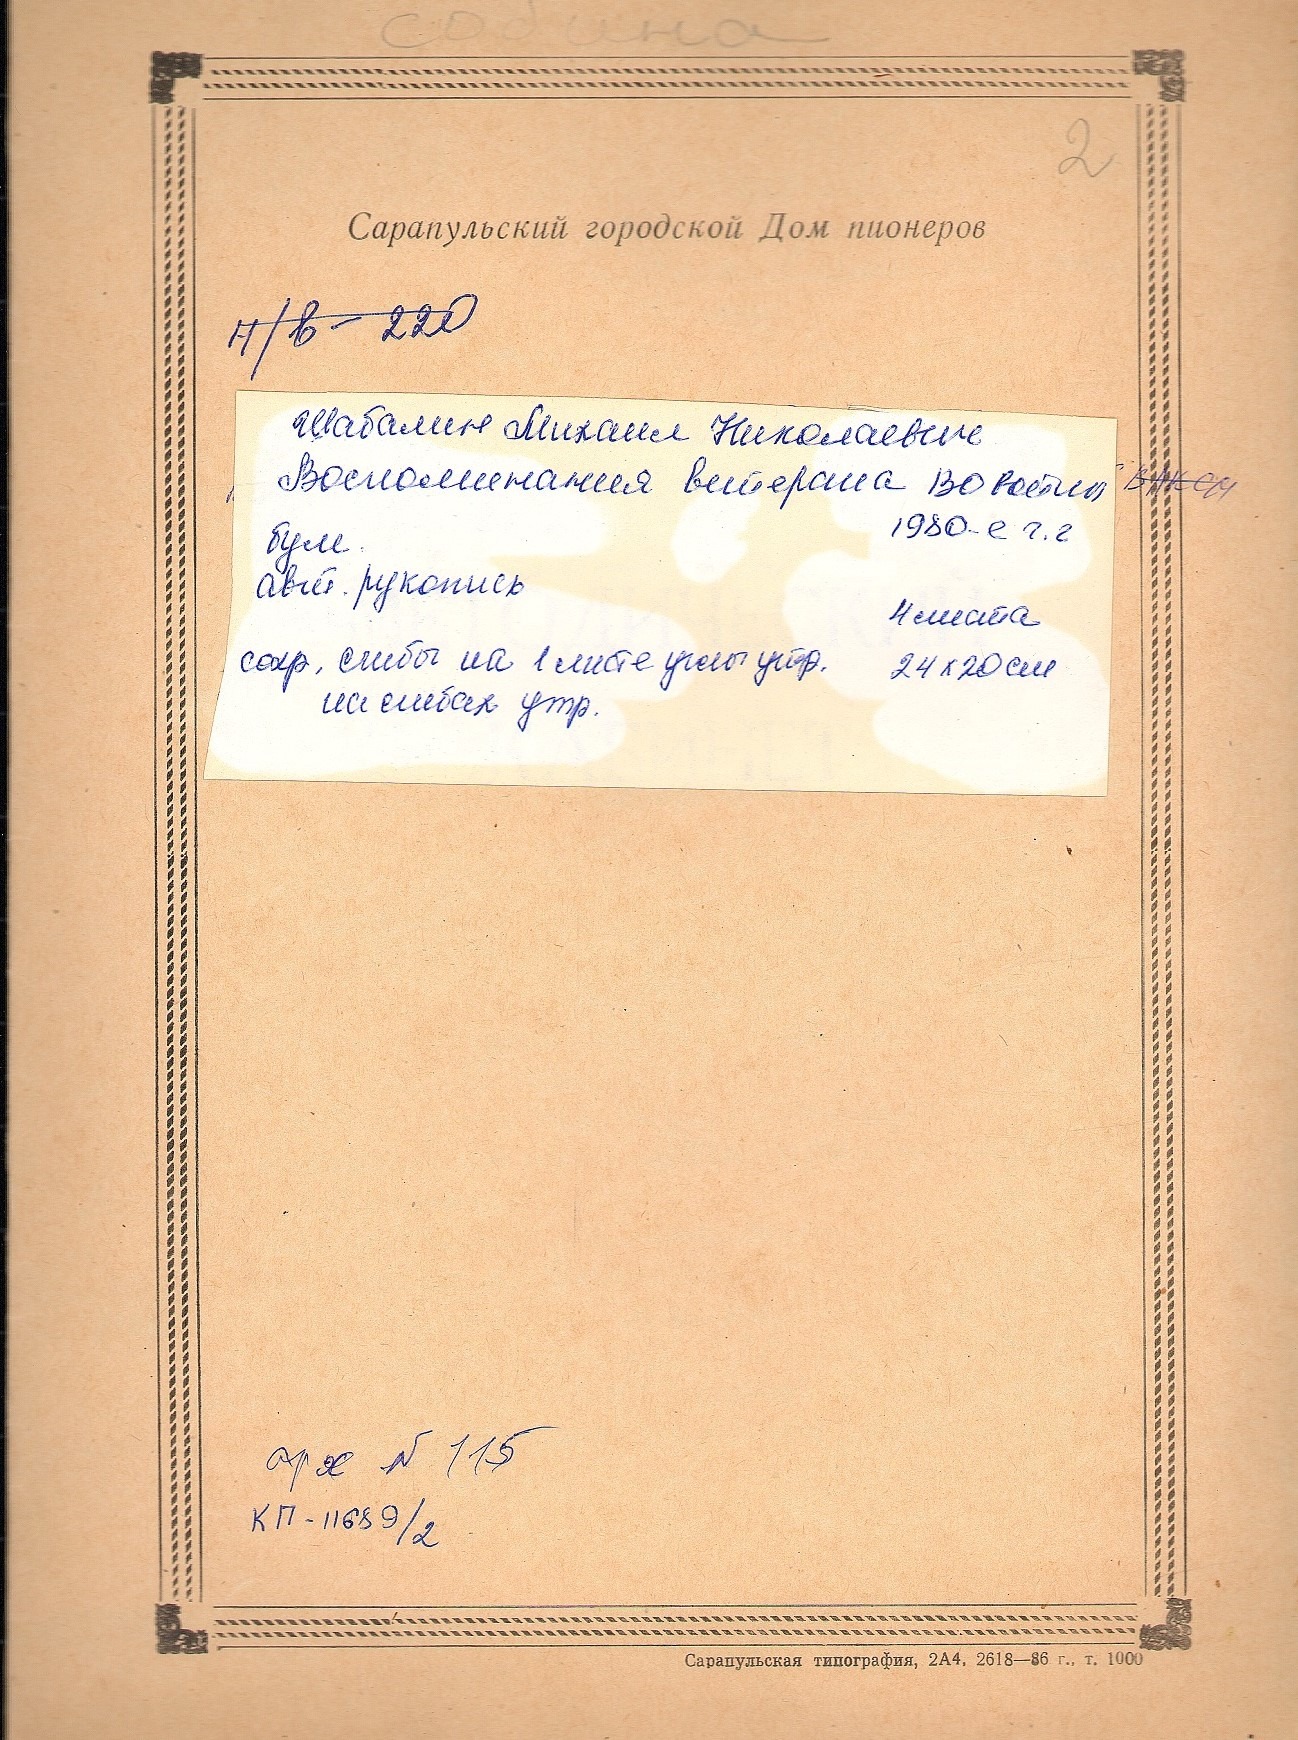 2
Сарапульский городской Дом пионеров
Н/В - 220
Шабалин Михаил Николаевич
Воспоминания ветерана ВО войны ВЛКСМ
1980-е г.г
бум.
авт. рукопись
4 листа
сохр. сгибы на 1 листе углы утр. 24х20см
на сгибах утр.
арх N 115
КП-11689/2
Сарапульская типография, 2А4, 2618—86 г., т. 1000